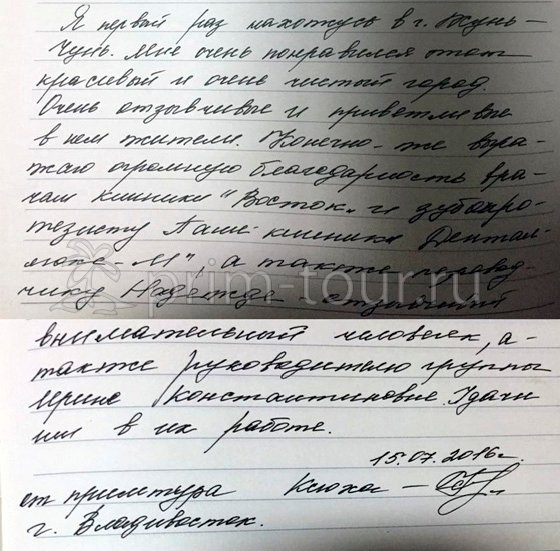 Я первый раз нахожусь в г. Хунь-
Чунь. Мне очень понравился этот
красивый и очень чистый город.
Очень отзывчивые и приветливые
в нем жители. Конечно-же выра-
жаю огромную благодарность вра-
чам клиники "Восток" и зубопро-
тезисту Паше клиники Дентал-
люкс-М", а также перевод-
чику Надежде - отзывчивый
prim-tour.ru
внимательный человек, а-
также руководителю группы
Ирине Константиновне. Удачи
им в их работе.
15.07.2016г.
от примтура Ксюха -
г. Владивосток.